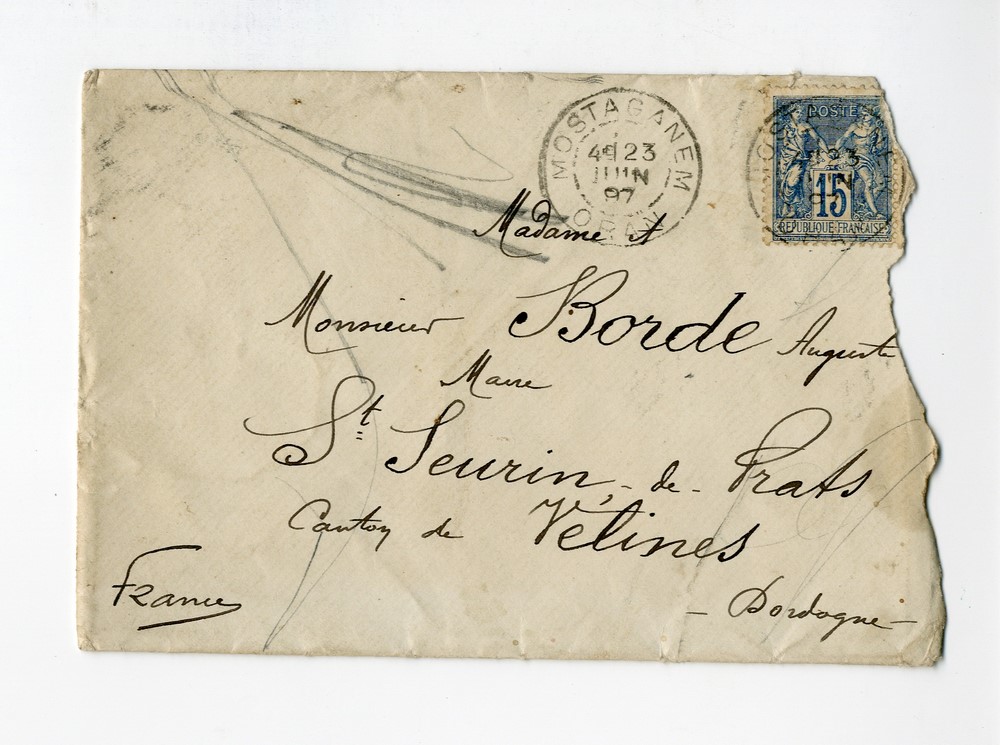 MOSTAGANEM
4E 23
JUIN
97
ORAN
POSTES
15
REPUBLIQUE FRANCAISE
Madame et
Monsieur Borde Auguste
Maire
St Seurin-de-Prats
Canton de Vélines
France
- Dordogne -